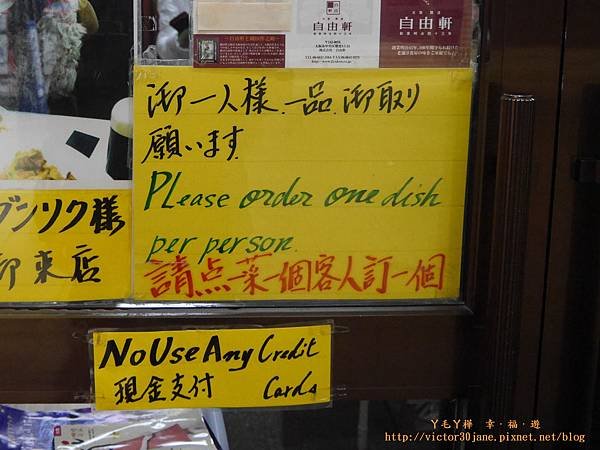 自由軒
自由軒
御一人様、一品、御取り
願います
PLease order one dish
per person.
請点菜一個客人訂一個
ブンソク様
御来店
No Use Any Credit
現金支付 Cards
ㄚ毛ㄚ樺 幸‧福‧遊
http://victor30jane.pixnet.net/blog